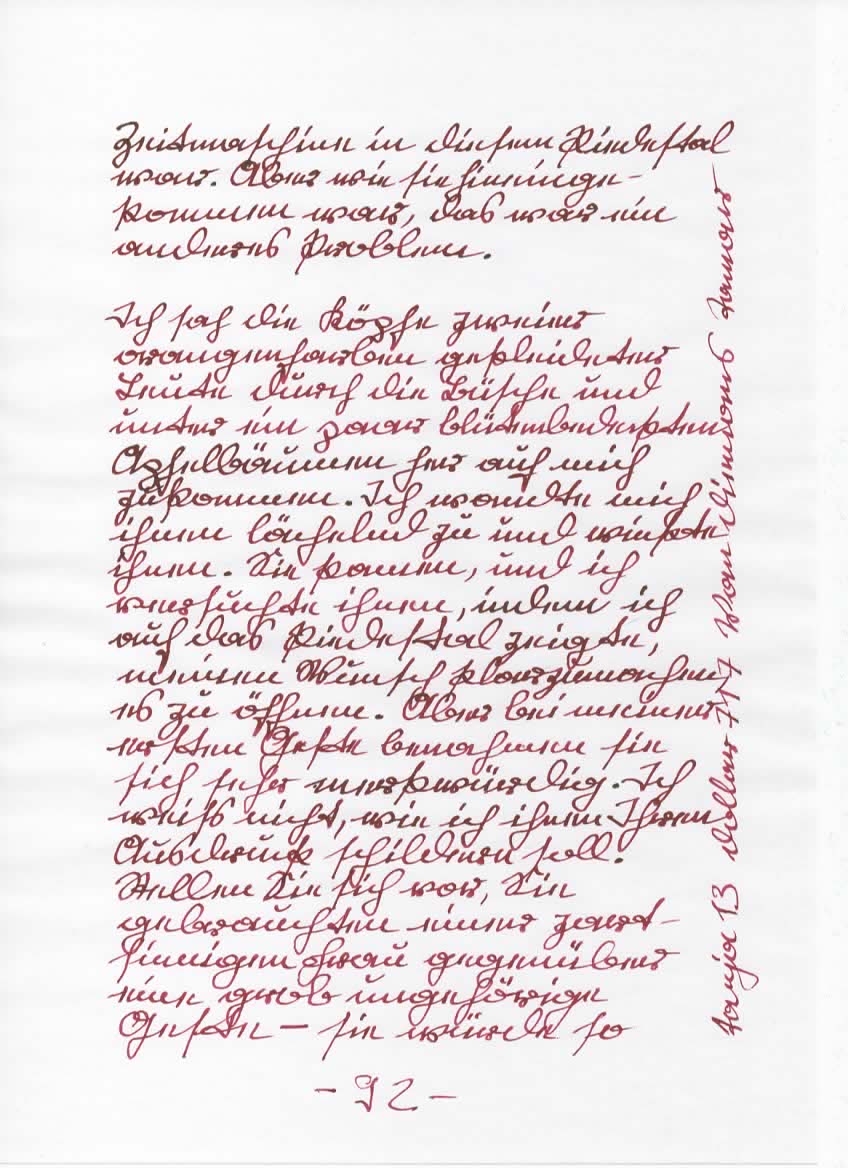 Zeitmaschine in diesem Piedestal
war. Aber wie sie hineinge-
kommen war, das war ein
anderes Problem.
Ich sah die Köpfe zweier
orangenfarben gekleideter
Leute durch die Büsche und
unter ein paar blütenbedeckten
Apfelbäumen her auf mich
zukommen. Ich wandte mich
ihnen lächelnd zu und winkte
ihnen. Sie kamen, und ich
versuchte ihnen, indem ich
auf das Piedestal zeigte,
meinen Wunsch klarzumachen
es zu öffnen. Aber bei meiner
ersten Geste benahmen sie
sich sehr merkwürdig. Ich
weiß nicht, wie ich ihnen Ihren
Ausdruck schildern soll.
Stellen Sie sich vor, Sie
gebrauchten einer zart-
sinnigen Frau gegenüber
eine grob ungehörige
Geste – sie würde so
- 92 -
Tanja 13